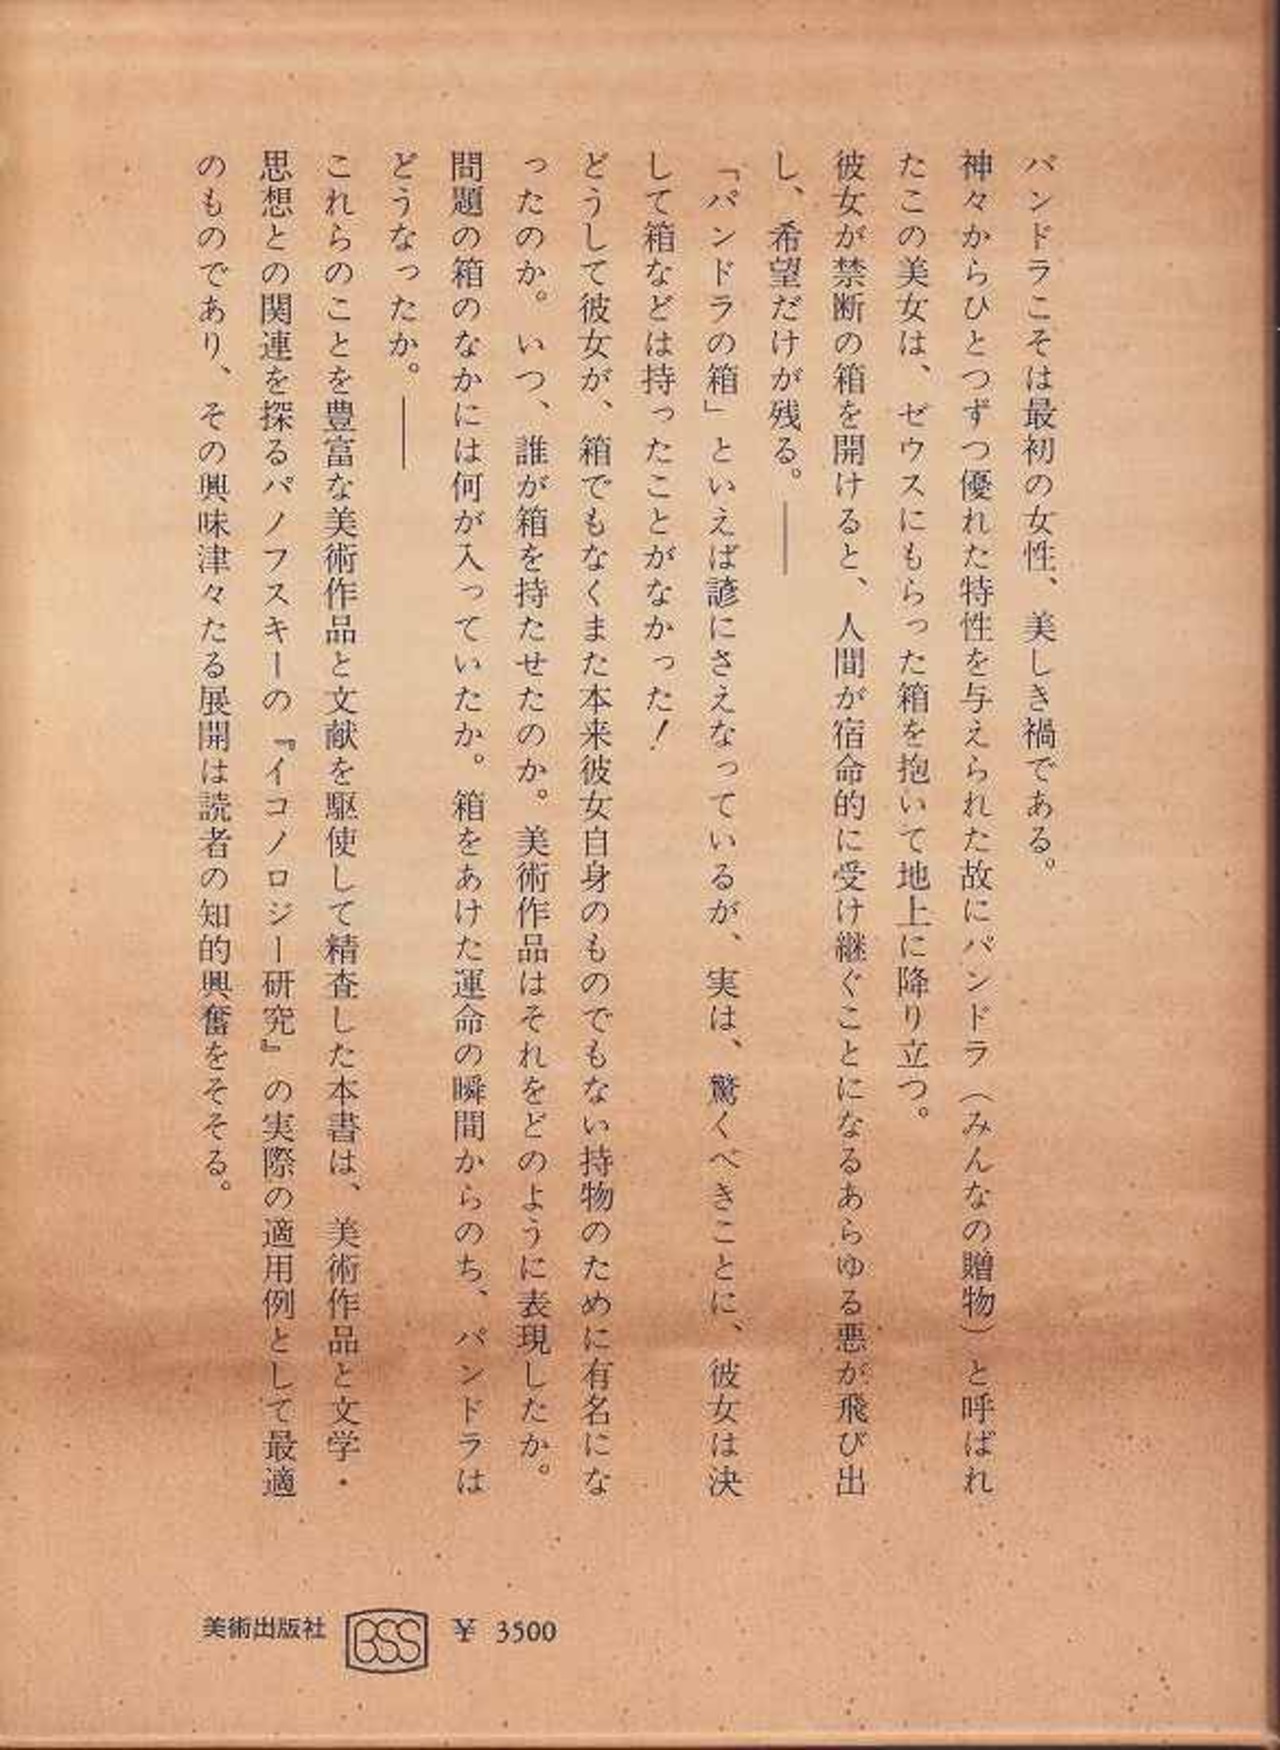 パンドラこそは最初の女性、美しき禍である。
神々からひとつずつ優れた特性を与えられた故にパンドラ（みんなの贈物）と呼ばれ
たこの美女は、ゼウスにもらった箱を抱いて地上に降り立つ。
彼女が禁断の箱を開けると、人間が宿命的に受け継ぐことになるあらゆる悪が飛び出
し、希望だけが残る。――
「パンドラの箱」といえば諺にさえなっているが、実は、驚くべきことに、彼女は決
して箱などは持ったことがなかった！
どうして彼女が、箱でもなくまた本来彼女自身のものでもない持物のために有名にな
ったのか。いつ、誰が箱を持たせたのか。美術作品はそれをどのように表現したか。
問題の箱のなかには何が入っていたか。箱をあけた運命の瞬間からのち、パンドラは
どうなったか。――
これらのことを豊富な美術作品と文献を駆使して精査した本書は、美術作品と文学・
思想との関連を探るパノフスキーの『イコノロジー研究』の実際の適用例として最適
のものであり、その興味津々たる展開は読者の知的興奮をそそる。
美術出版社 BSS ¥ 3500